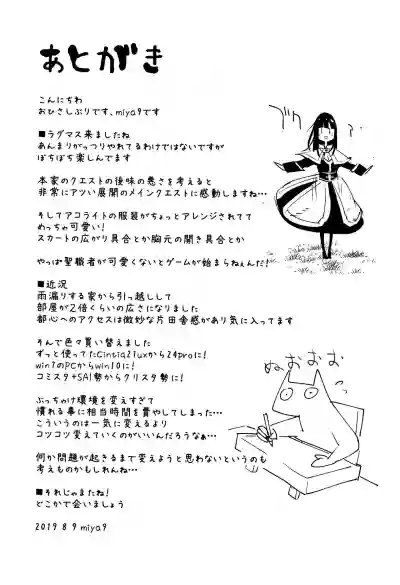 あとがき
こんにちわ
おひさしぶりです、miya9です
■ラグマス来ましたね
あんまりがっつりやれてるわけではないですが
ぼちぼち楽しんでます
本家のクエストの後味の悪さを考えると
非常にアツい展開のメインクエストに感動しますね…
そしてアコライトの服装がちょっとアレンジされてて
めっちゃ可愛い!
スカートの広がり具合とか胸元の開き具合とか
やっぱ聖職者が可愛くないとゲームが始まらねぇんだ!
■近況
雨漏りする家から引っ越しして
部屋が2倍くらいの広さになりました
都心へのアクセスは微妙な片田舎感があり気に入ってます
そんで色々買い替えました
ずっと使ってたCintiq21uxから24proに!
win7のPCからwin10に!
コミスタ+SAI勢からクリスタ勢に!
ぶっちゃけ環境を変えすぎて
慣れる事に相当時間を費やしてしまった…
こういうのは一気に変えるより
コツコツ変えていくのがいいんだろうなぁ…
何か問題が起きるまで変えようと思わないというのも
考えものかもしれんね…
■それじゃまたね!
どこかで会いましょう
2019 8 9 miya9
ブワッ
ぬおおおむ